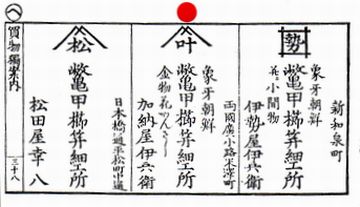 勢
新和泉町
象牙朝鮮
鼈亀甲櫛笄細工所
花小間物
伊勢屋伊兵衛
叶
両國廣小路米澤町
象牙朝鮮
鼈亀甲櫛笄細工所
金物花かんざし
加納屋伊兵衛
松
鼈亀甲櫛笄細工所
日本橋通平松町中通
松田屋幸八
買物獨案内
三十八